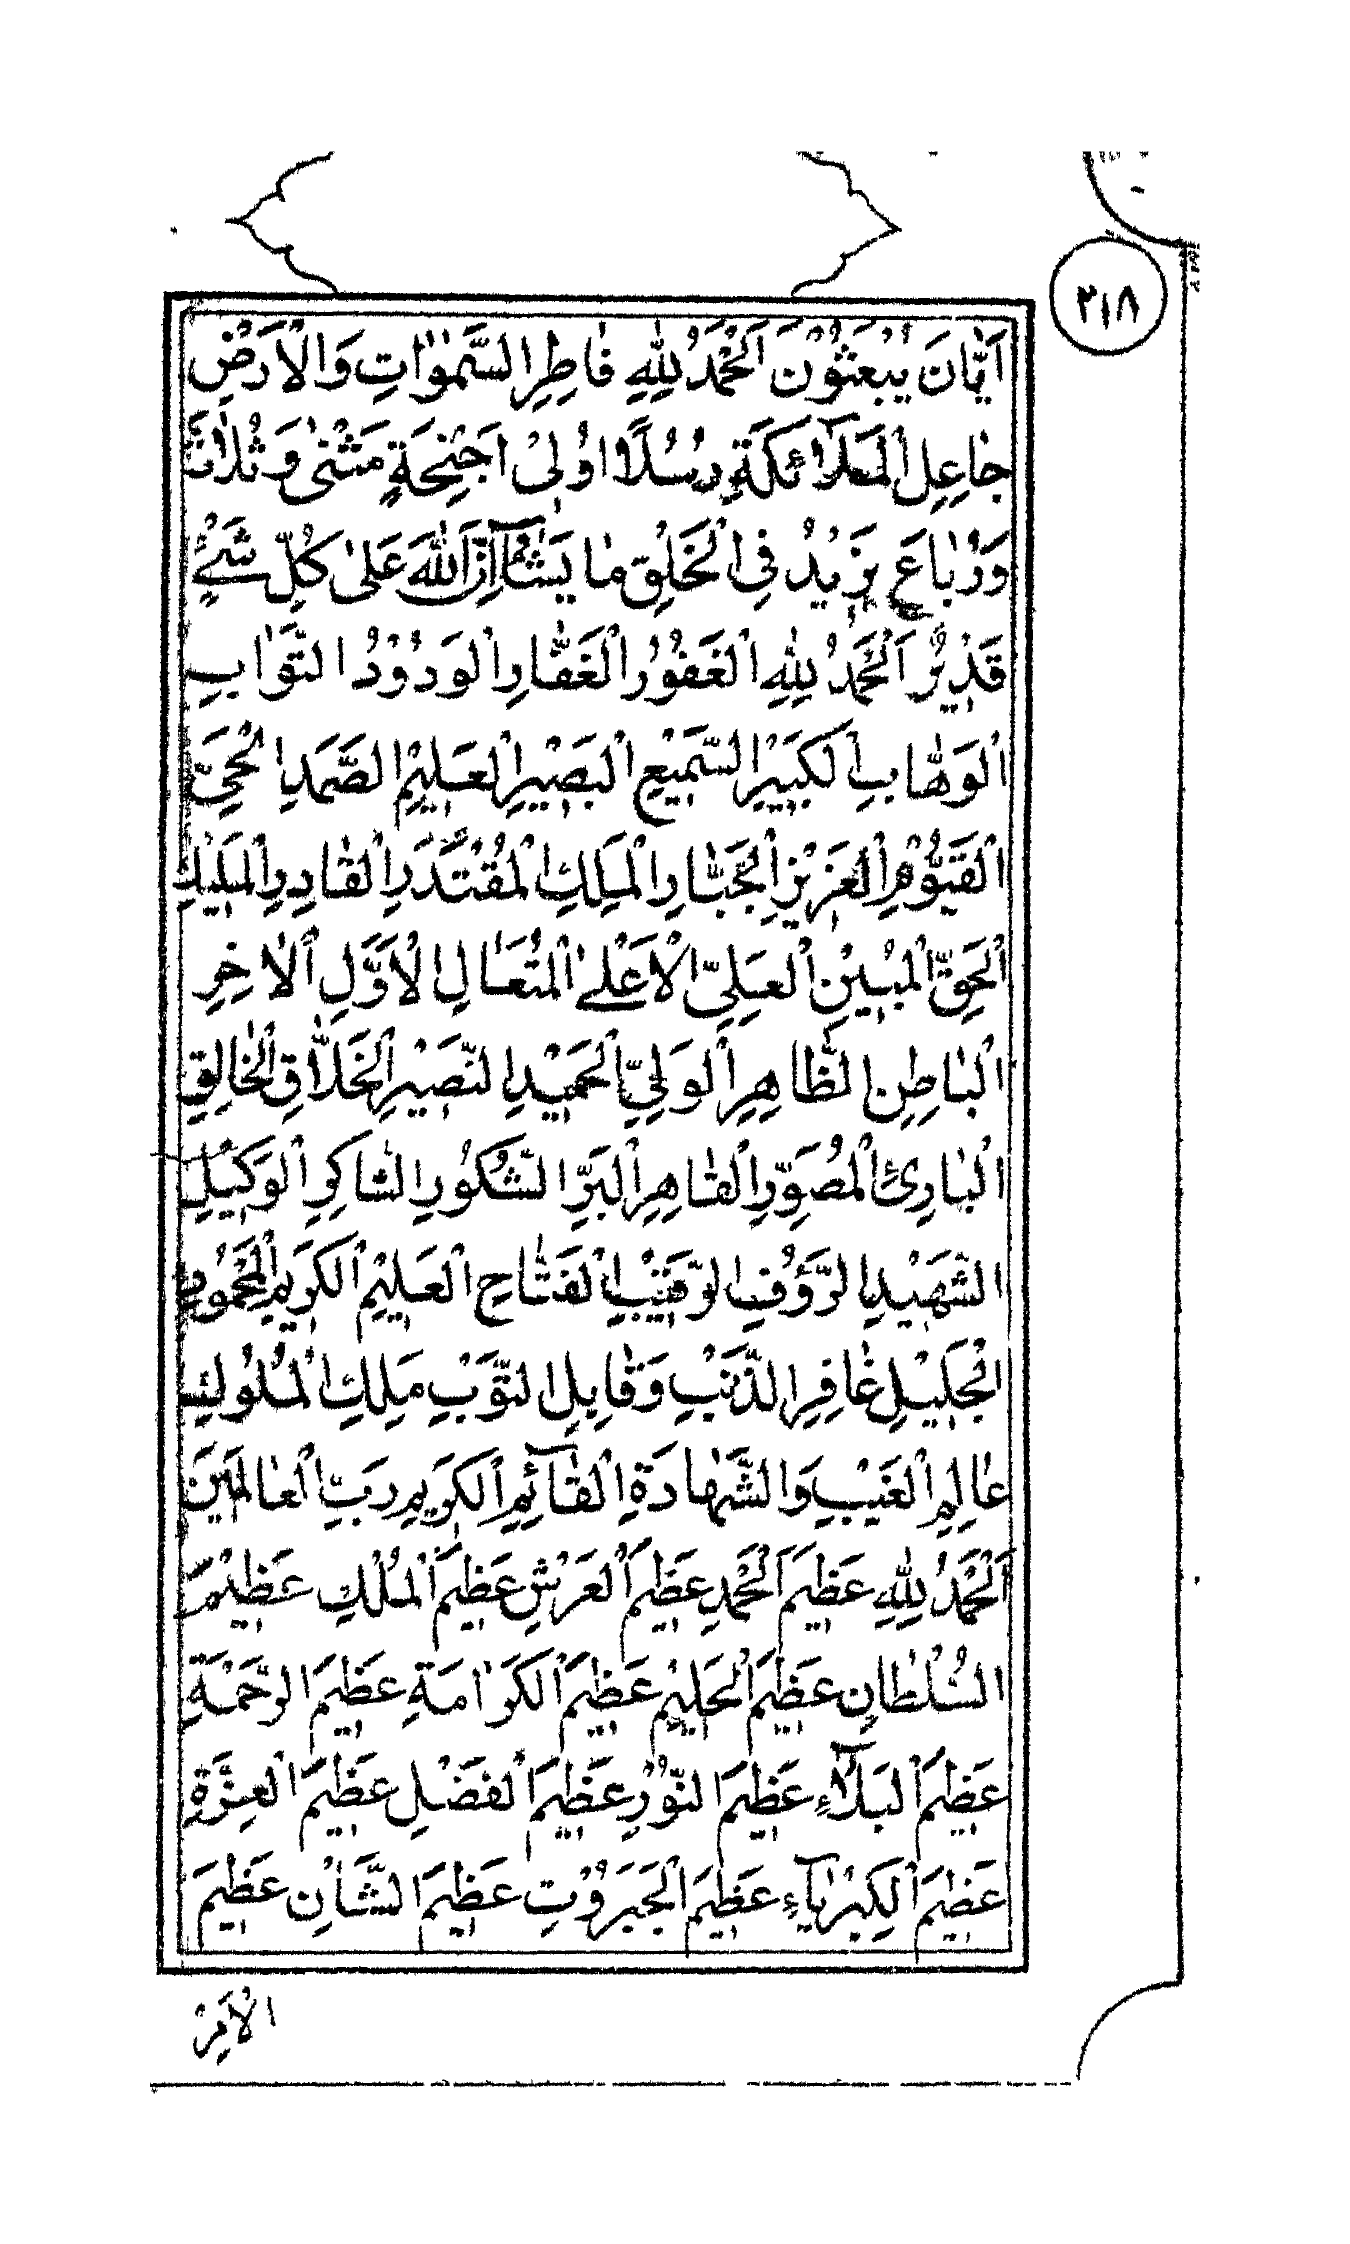 ٢١٨
اَيّٰانَ يُبْعَثُوْنَ اَلْحَمْدُ لِلّٰهِ فٰاطِرِ السَّمٰوٰاتِ وَالْاَرْضِ
جٰاعِلِ الْمَلَآئِكَةِ رُسُلًا اُوْلِىْ اَجْنِحَةٍ مَثْنٰى وَ ثُلٰاثَ
وَ رُبٰاعَ يَزِيْدُ فِى الْخَلْقِ مٰا يَشٰآءُ اِنَّ اللّٰهَ عَلٰى كُلِّ شَىْءٍ
قَدِيْرٌ اَلْحَمْدُ لِلّٰهِ الْغَفُوْرِ الْغَفّٰارِ الْوَدُوْدُ التَّوّٰابِ
الْوَهّٰابِ الْكَبِيْرِ السَّمِيْعِ الْبَصِيْرِ الْعَلِيْمِ الصَّمَدِ الْحَىِّ
الْقَيُّوْمِ الْعَزِيْزِ الْجَبّٰارِ الْمَلِكِ الْمُقْتَدِرِ الْقٰادِرِ الْمَلِيْكِ
الْحَقِّ الْمُبِيْنِ الْعَلِىِّ الْاَعْلٰى الْمُتَعٰالِ الْاَوَّلِ الْاٰخِرِ
الْبٰاطِنِ الظّٰاهِرِ الْوَلِىِّ الْحَمِيْدِ النَّصِيْرِ الْخَلّٰاقِ الْخٰالِقِ
الْبٰارِئِ الْمُصَوِّرِ الْقٰاهِرِ الْبَرِّ الشَّكُوْرِ الشّٰاكِرِ الْوَكِيْلِ
الشَّهِيْدِ الرَّؤُفِ الرَّقِيْبِ الْفَتّٰاحِ الْعَلِيْمِ الْكَرِيْمِ الْمَحْمُوْدِ
الْجَلِيْلِ غٰافِرِ الذَّنْبِ وَ قٰابِلِ التَّوْبِ مَلِكِ الْمُلُوْكِ
عٰالِمِ الْغَيْبِ وَ الشَّهٰادَةِ الْقٰآئِمِ الْكَرِيْمِ رَبِّ الْعٰالَمِيْنَ
اَلْحَمْدُ لِلّٰهِ عَظِيْمَ الْحَمْدِ عَظِيْمَ الْعَرْشِ عَظِيْمَ الْمُلْكِ عَظِيْمَ
السُّلْطٰانِ عَظِيْمَ الْحِلْمِ عَظِيْمَ الْكَرٰامَةِ عَظِيْمَ الرَّحْمَةِ
عَظِيْمَ الْبَلَآءِ عَظِيْمَ النُّوْرِ عَظِيْمَ الْفَضْلِ عَظِيْمَ الْعِزَّةِ
عَظِيْمَ الْكِبْرِيٰآءِ عَظِيْمَ الْجَبَرُوْتِ عَظِيْمَ الشَّاْنِ عَظِيْمَ
الْاَمْرِ